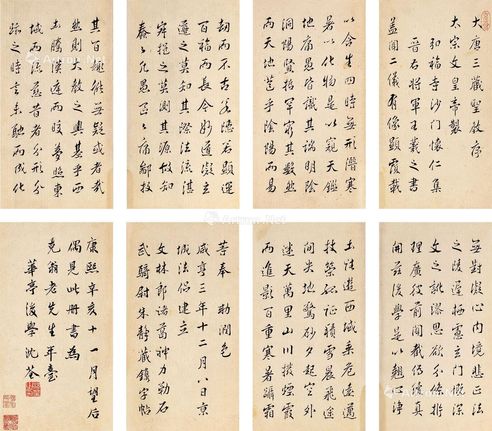 大唐三藏聖教序
太宗文皇帝製
弘福寺沙门懷仁集
右將軍王羲之書
蓋聞二儀有像顯覆載
以含生四時無形潛寒
暑以化物是以窺天鑑
地庸愚皆識其端明陰
洞陽賢哲罕窮其數然
而天地苞乎陰陽而易
劫而不古若隱若顯運
百福而長今妙道凝玄
遵之莫知其際法流湛
寂挹之莫測其源故知
蠢々凡愚區々庸鄙投
其旨趣能無疑或者哉
然則大教之興基乎西
土騰漢運而皎夢照東
域而流慈昔者分形分
跡之時言未馳而成化
心内境悲正法
之陵遲栖慮玄门慨深
文之訛謬思欲分條析
理廣彼前聞截偽續真
開茲後學是以翹心淨
土往遊西域乘危遠邁
策孤征積雪晨飛途
間失地驚砂夕起空外
迷天萬里山川撥煙霞
而進影百重寒暑躡霜
菩奉 勅潤色
咸亨三年十二月八日京
城法侶建立
文林郎諸葛神力勒石
武騎尉朱靜藏鐫字帖
康熙辛亥十一月望后
偶見此册書為
克翁老先生年臺
華亭後學沈荃